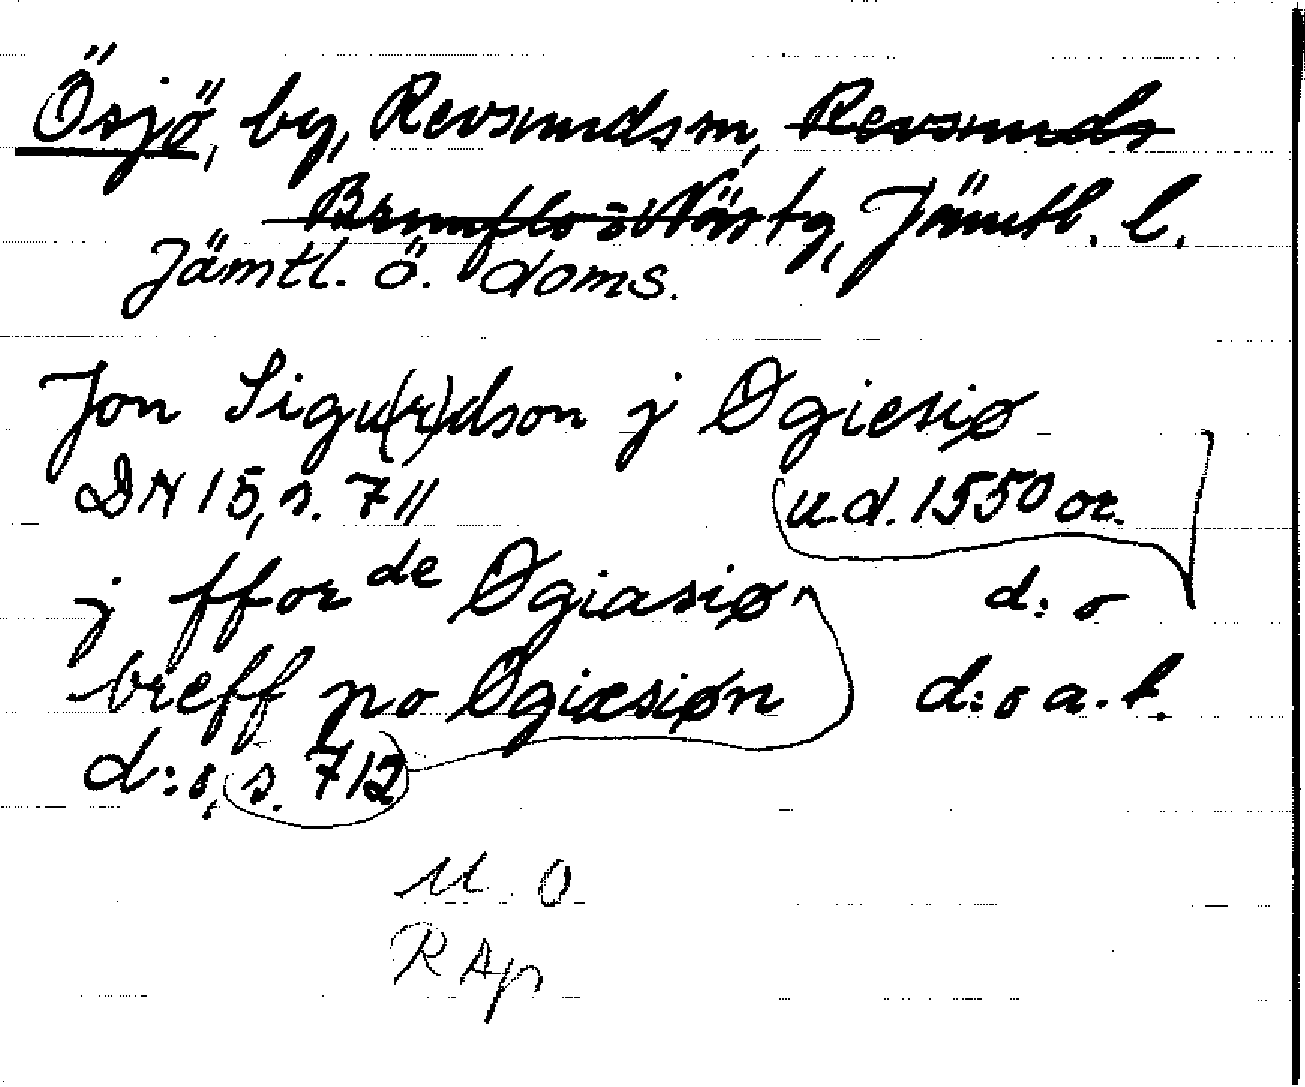 Ösjö, by, Revsundssn, Revsunds
Brunflo o Näs tg, Jämtl. l.
Jämtl. ö. doms.
Jon Sigu(r)dson j Øgiesiø
DN 15, s. 711 u.d. 1550 or.
j ffor de Øgiasiø d:o
breff po Øgiæsiøn d:o a.t.
d:o, s. 712
M. O
R Ap